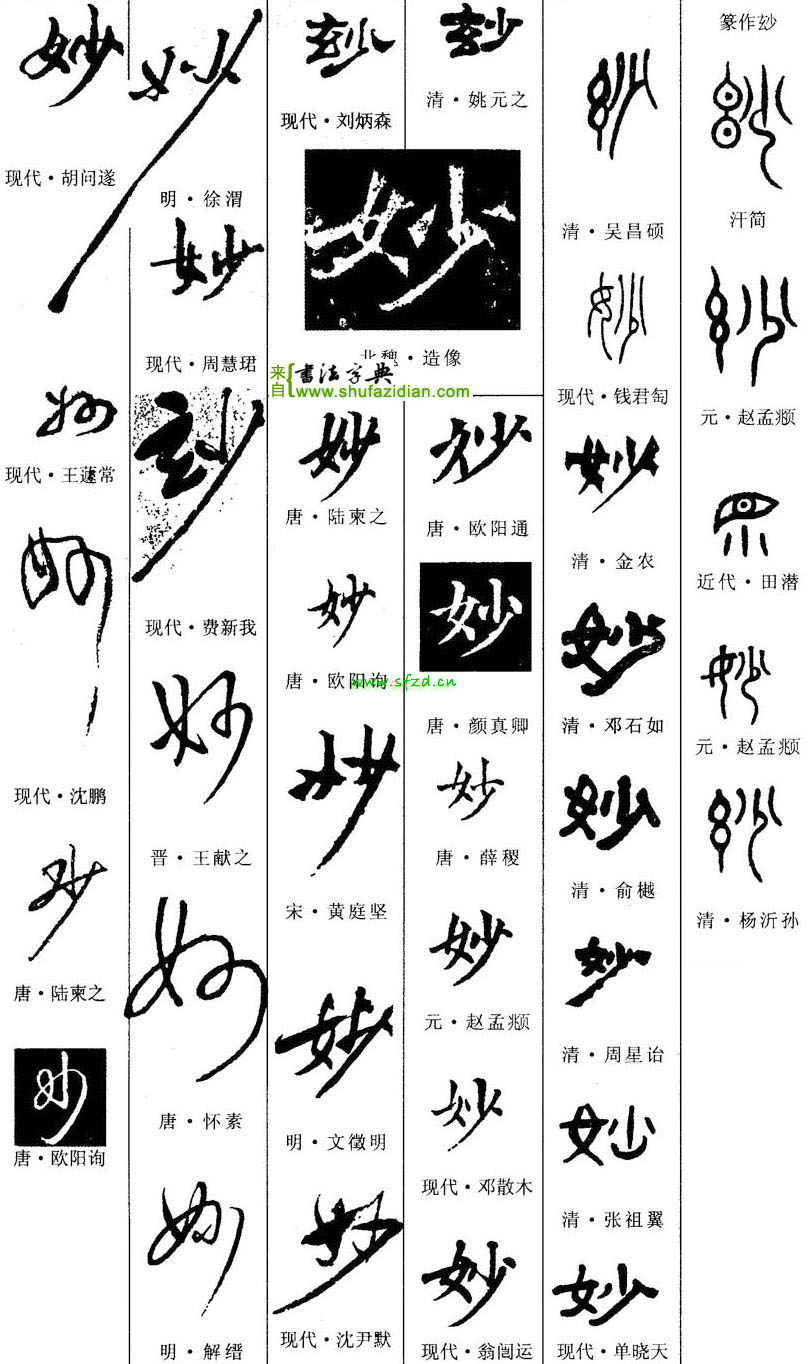 篆作玅
玅
汗简
玅
元·赵孟頫
近代·田潜
妙
元·赵孟頫
玅
清·杨沂孙
玅
清·吴昌硕
妙
现代·钱君匋
妙
清·金农
妙
清·邓石如
妙
清·俞樾
妙
清·周星诒
妙
清·张祖翼
妙
现代·单晓天
玅
清·姚元之
玅
现代·刘炳森
妙
北魏·造像
来自
书法字典
www.shufazidian.com
玅
唐·欧阳通
妙
唐·颜真卿
妙
唐·薛稷
妙
元·赵孟頫
妙
现代·邓散木
妙
现代·翁闿运
妙
唐·陆柬之
妙
唐·欧阳询
www.sfzd.cn
妙
宋·黄庭坚
妙
明·文徵明
妙
现代·沈尹默
妙
明·徐渭
妙
现代·周慧珺
玅
现代·费新我
妙
晋·王献之
妙
唐·怀素
妙
明·解缙
妙
现代·胡问遂
妙
现代·王蘧常
妙
现代·沈鹏
妙
唐·陆柬之
妙
唐·欧阳询